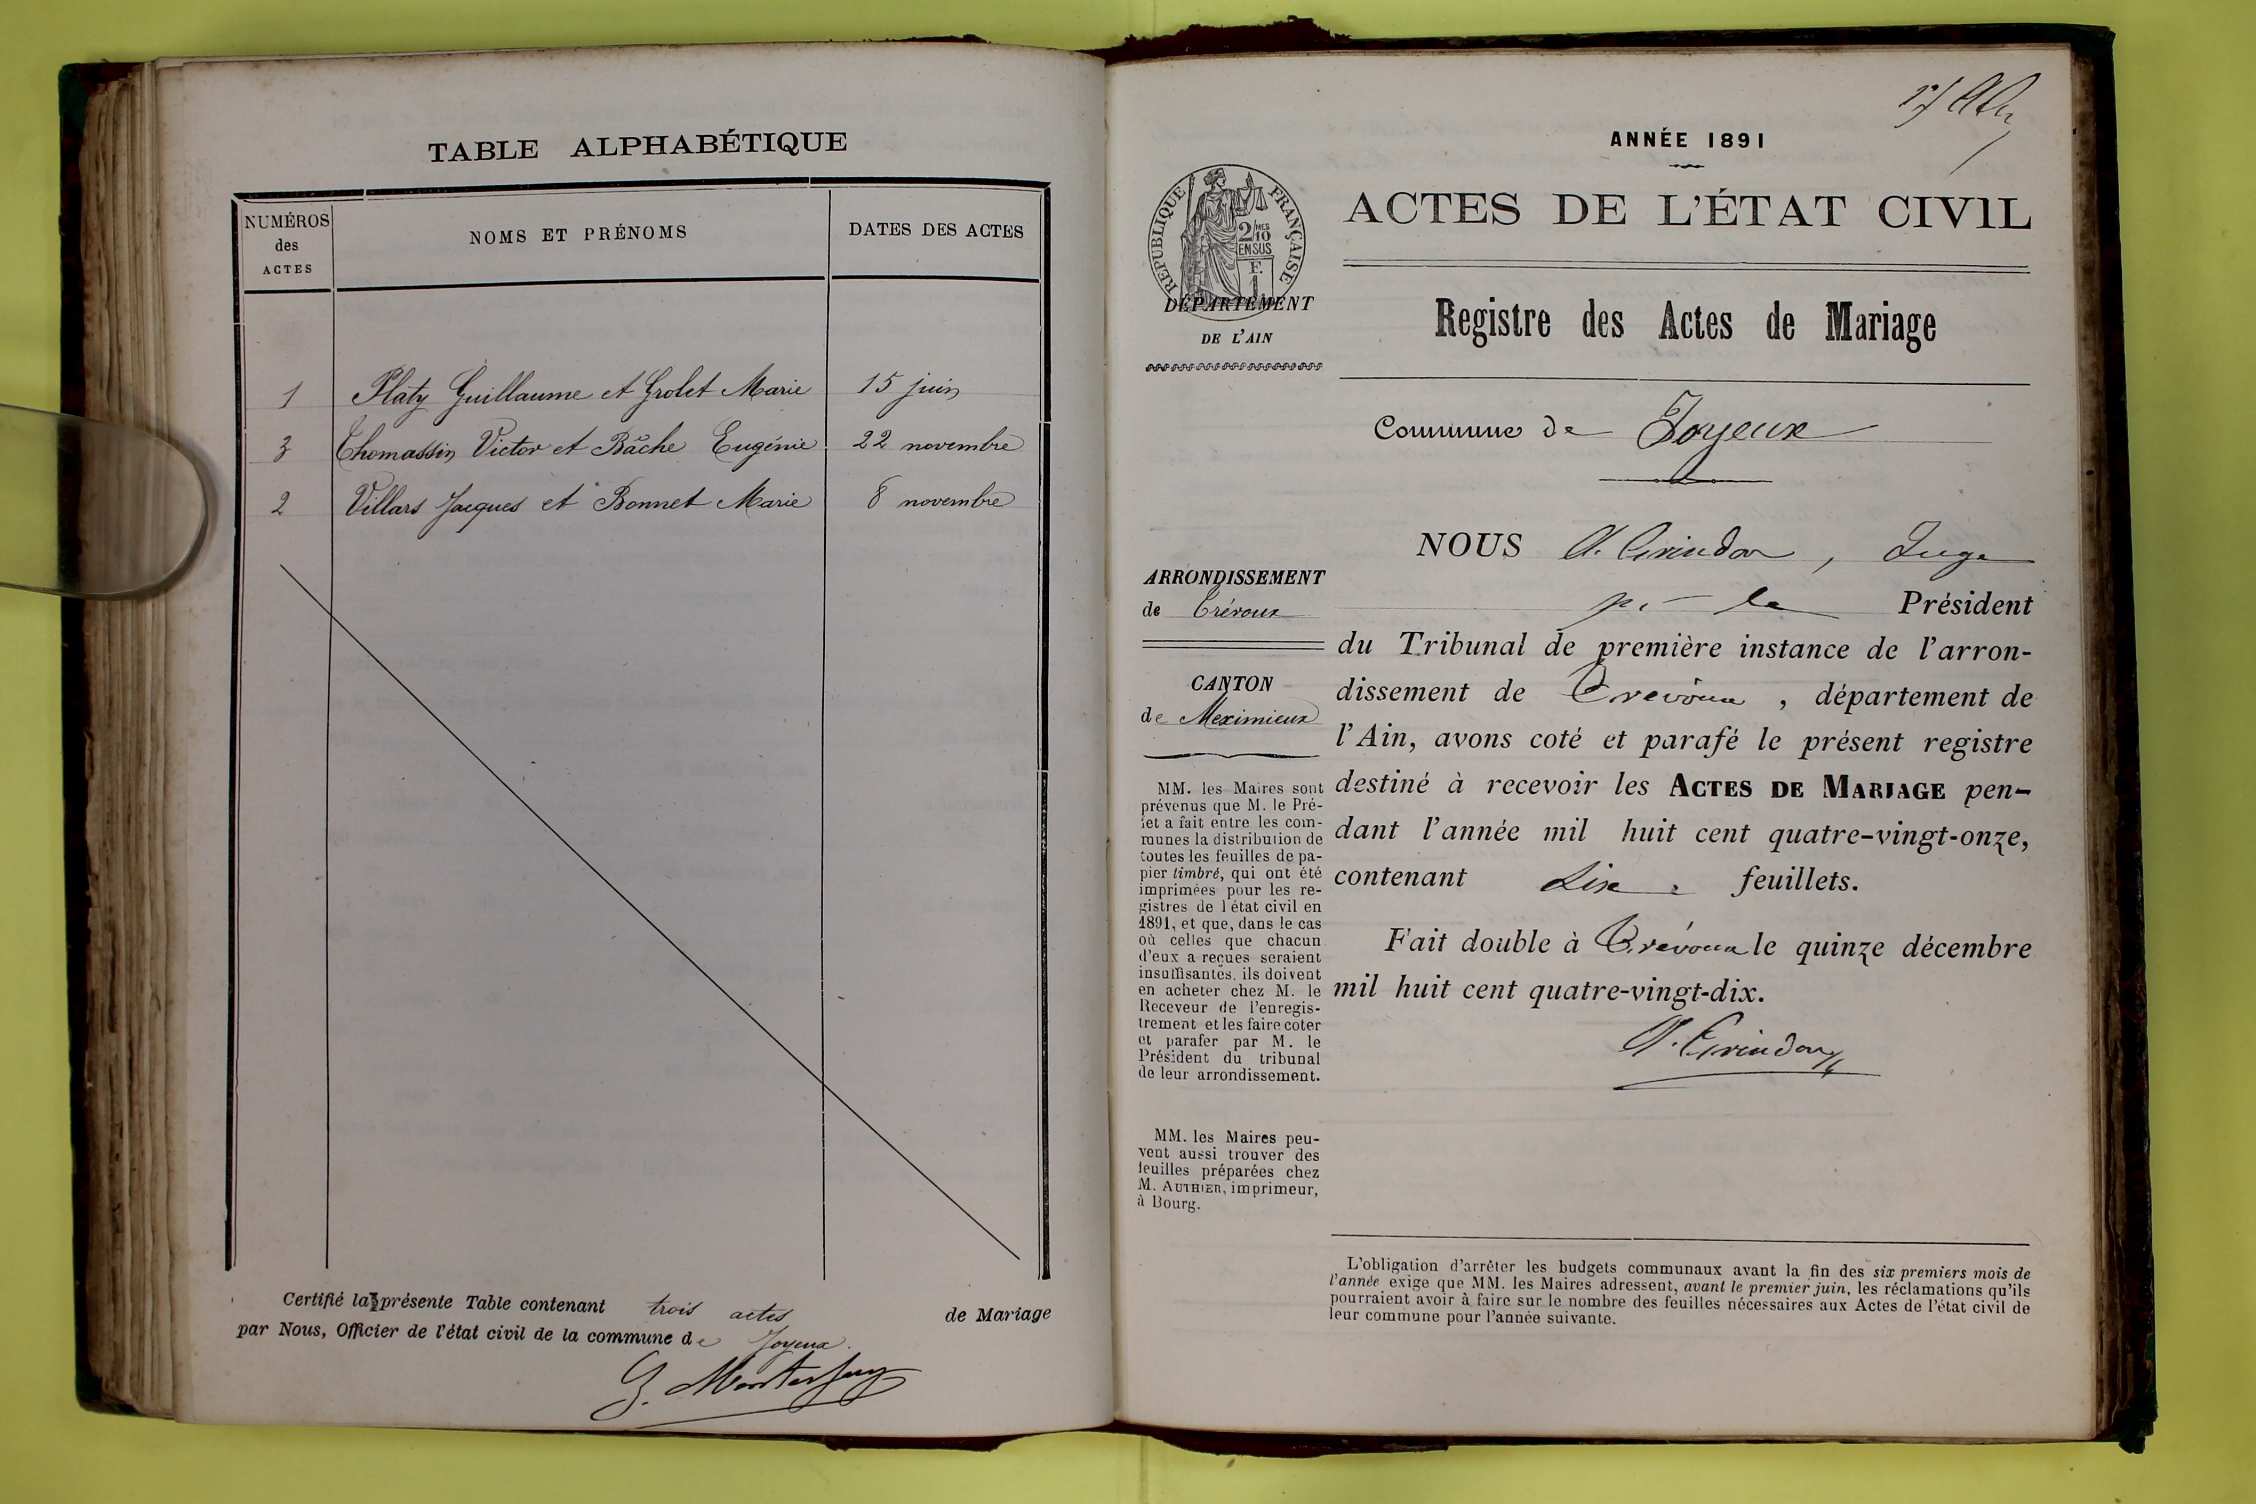 TABLE ALPHABÉTIQUE
NUMÉROS des ACTES
NOMS ET PRÉNOMS
DATES DES ACTES
1 Platy Guillaume et Grolet Marie 15 juin
3 Thomassin Victor et Bâche Eugénie 22 novembre
2 Villars Jacques et Bonnet Marie 8 novembre
Certifié la présente Table contenant trois actes de Mariage
par Nous, Officier de l'état civil de la commune de Joyeux.
ANNÉE 1891
RÉPUBLIQUE FRANÇAISE
2/10 MES
EN SUS
F.
1
ACTES DE L'ÉTAT CIVIL
DÉPARTEMENT
DE L'AIN
Registre des Actes de Mariage
Commune de Joyeux
ARRONDISSEMENT
de Trévoux
CANTON
de Meximieux
MM. les Maires sont
prévenus que M. le Pré-
fet a fait entre les com-
munes la distribution de
toutes les feuilles de pa-
pier timbré, qui ont été
imprimées pour les re-
gistres de l'état civil en
1891, et que, dans le cas
où celles que chacun
d'eux a reçues seraient
insuffisantes, ils doivent
en acheter chez M. le
Receveur de l'enregis-
trement et les faire coter
et parafer par M. le
Président du tribunal
de leur arrondissement.
MM. les Maires peu-
vent aussi trouver des
feuilles préparées chez
M. AUTHIER, imprimeur,
à Bourg.
NOUS A. Grindon, Juge
pr le Président
du Tribunal de première instance de l'arron-
dissement de Trévoux, département de
l'Ain, avons coté et parafé le présent registre
destiné à recevoir les ACTES DE MARIAGE pen-
dant l'année mil huit cent quatre-vingt-onze,
contenant Six feuillets.
Fait double à Trévoux le quinze décembre
mil huit cent quatre-vingt-dix.
A. Grindon
L'obligation d'arrêter les budgets communaux avant la fin des six premiers mois de
l'année exige que MM. les Maires adressent, avant le premier juin, les réclamations qu'ils
pourraient avoir à faire sur le nombre des feuilles nécessaires aux Actes de l'état civil de
leur commune pour l'année suivante.